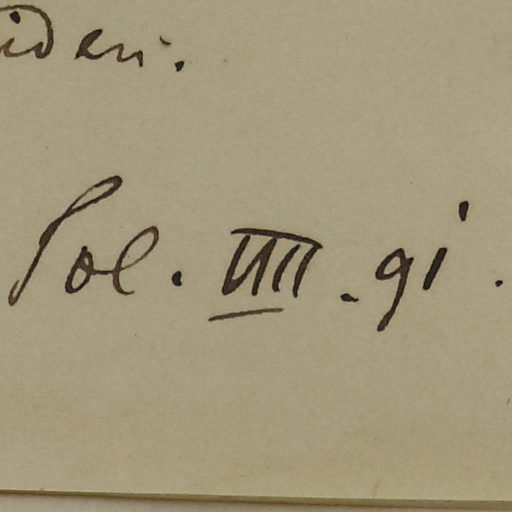 iden.
Pol. VIII. 91.